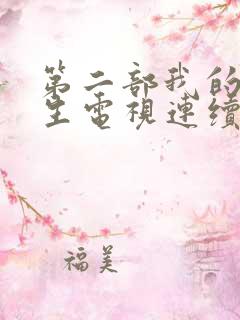 第二部我的
生電視連續
福美